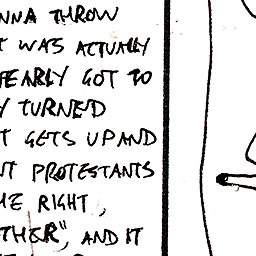 NNA THROW
T WAS ACTUALLY
EARLY GOT TO
Y TURNED
T GETS UP AND
NT PROTESTANTS
HE RIGHT,
THER", AND IT